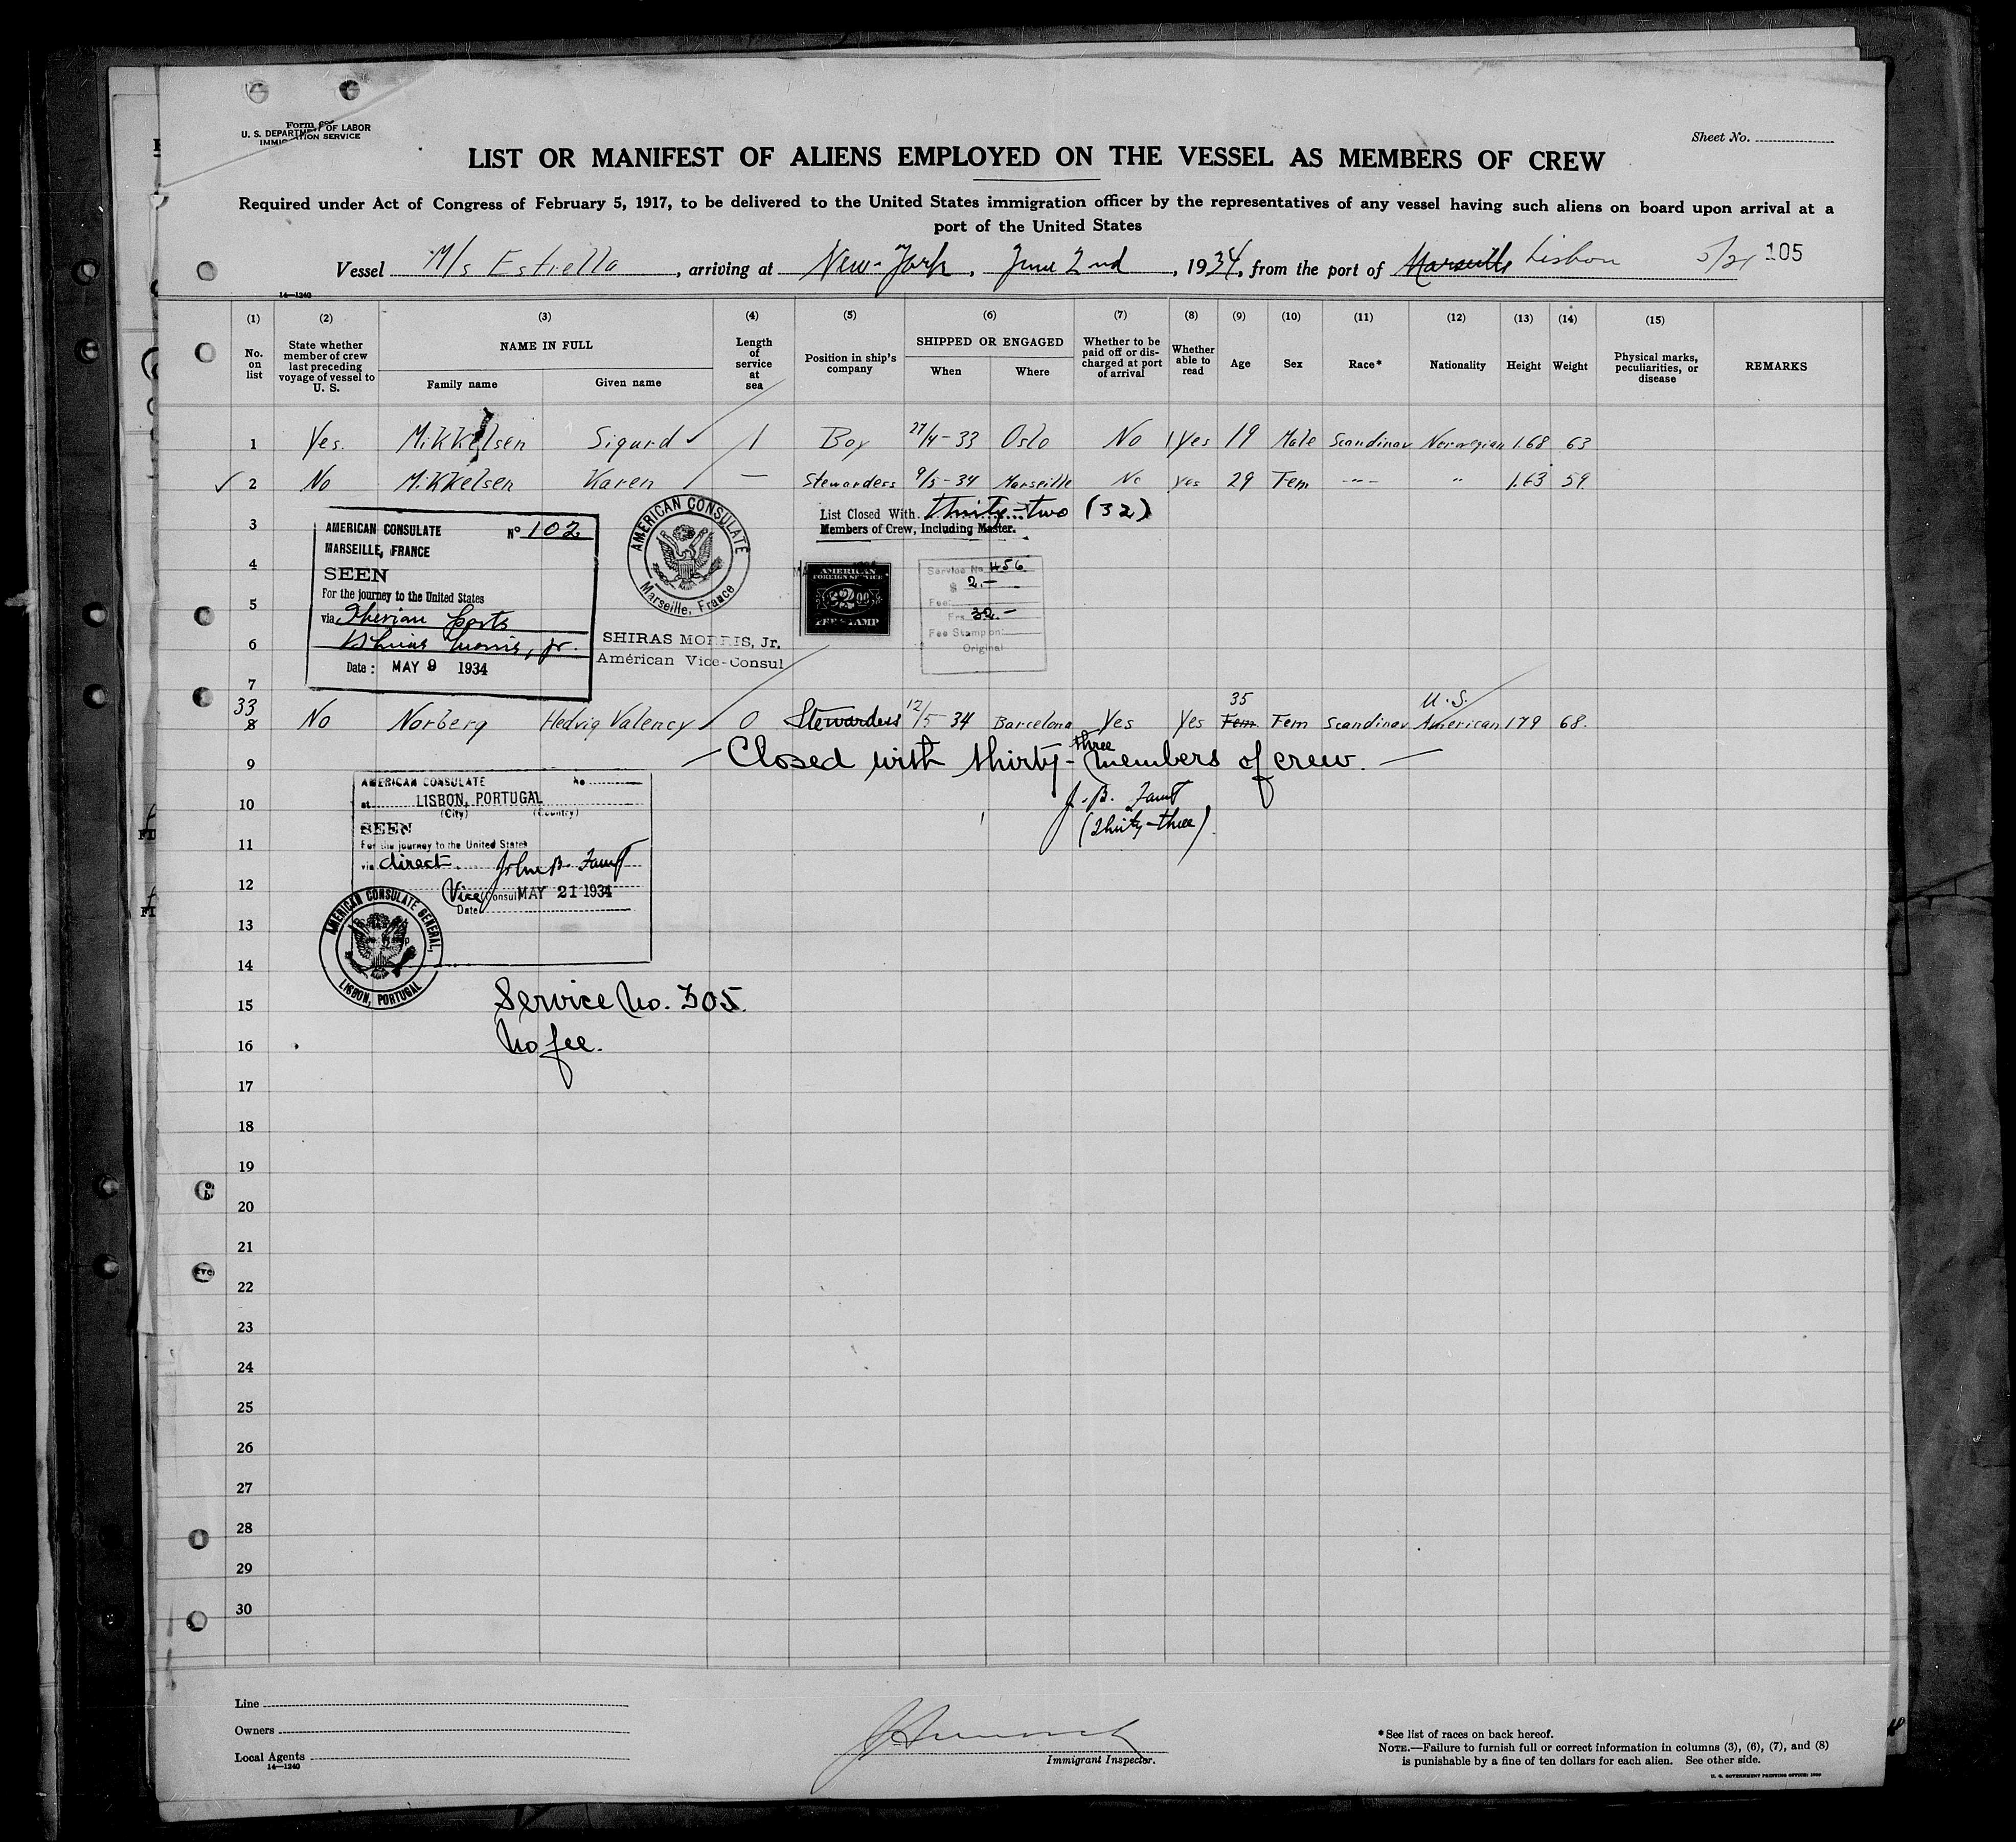 Form 689
U. S. DEPARTMENT OF LABOR
IMMIGRATION SERVICE
Sheet No.
LIST OR MANIFEST OF ALIENS EMPLOYED ON THE VESSEL AS MEMBERS OF CREW
Required under Act of Congress of February 5, 1917, to be delivered to the United States immigration officer by the representatives of any vessel having such aliens on board upon arrival at a
port of the United States
Vessel M/s Estrella, arriving at New-York, June 2nd, 1934, from the port of Marseille Lisbon 5/21 105
14—1240
(1) (2) (3) (4) (5) (6) (7) (8) (9) (10) (11) (12) (13) (14) (15)
No. on list
State whether member of crew last preceding voyage of vessel to U. S.
NAME IN FULL
Family name Given name
Length of service at sea
Position in ship's company
SHIPPED OR ENGAGED
When Where
Whether to be paid off or discharged at port of arrival
Whether able to read
Age Sex Race* Nationality Height Weight
Physical marks, peculiarities, or disease
REMARKS
1 Yes. Mikkelsen Sigurd 1 Boy 27/4-33 Oslo No Yes 19 Male Scandinav Norwegian 1.68 63
2 No Mikkelsen Karen — Stewardess 9/5-34 Marseille No Yes 29 Fem -"- " 1.63 59.
3
List Closed With Thirty-two (32)
Members of Crew, Including Master.
AMERICAN CONSULATE Nº 102
MARSEILLE, FRANCE
SEEN
For the journey to the United States
via Iberian Ports
Shiras Morris, Jr.
Date: MAY 9 1934
AMERICAN CONSULATE
Marseille, France
SHIRAS MORRIS, Jr.
Américan Vice-Consul
AMERICAN
FOREIGN SERVICE
$2.00
FEE STAMP
Service No. 456
$ 2.-
Fee:
Frs 32.-
Fee Stamp on:
Original
4
5
6
7
33 8 No Norberg Hedvig Valency 0 Stewardess 12/5-34 Barcelona Yes Yes 35 Fem Fem Scandinav. U.S. American 179 68.
9
Closed with thirty-three members of crew.
J. B. Faust
(Thirty-three)
10
AMERICAN CONSULATE No
at LISBON, PORTUGAL
(City) (Country)
SEEN
For the journey to the United States
via direct. John B. Faust
Vice Consul MAY 21 1934
Date
AMERICAN CONSULATE GENERAL,
LISBON, PORTUGAL
11
12
13
14
15
Service No. 305.
No fee.
16
17
18
19
20
21
22
23
24
25
26
27
28
29
30
Line
Owners
Local Agents
14—1240
Immigrant Inspector.
*See list of races on back hereof.
NOTE.—Failure to furnish full or correct information in columns (3), (6), (7), and (8)
is punishable by a fine of ten dollars for each alien. See other side.